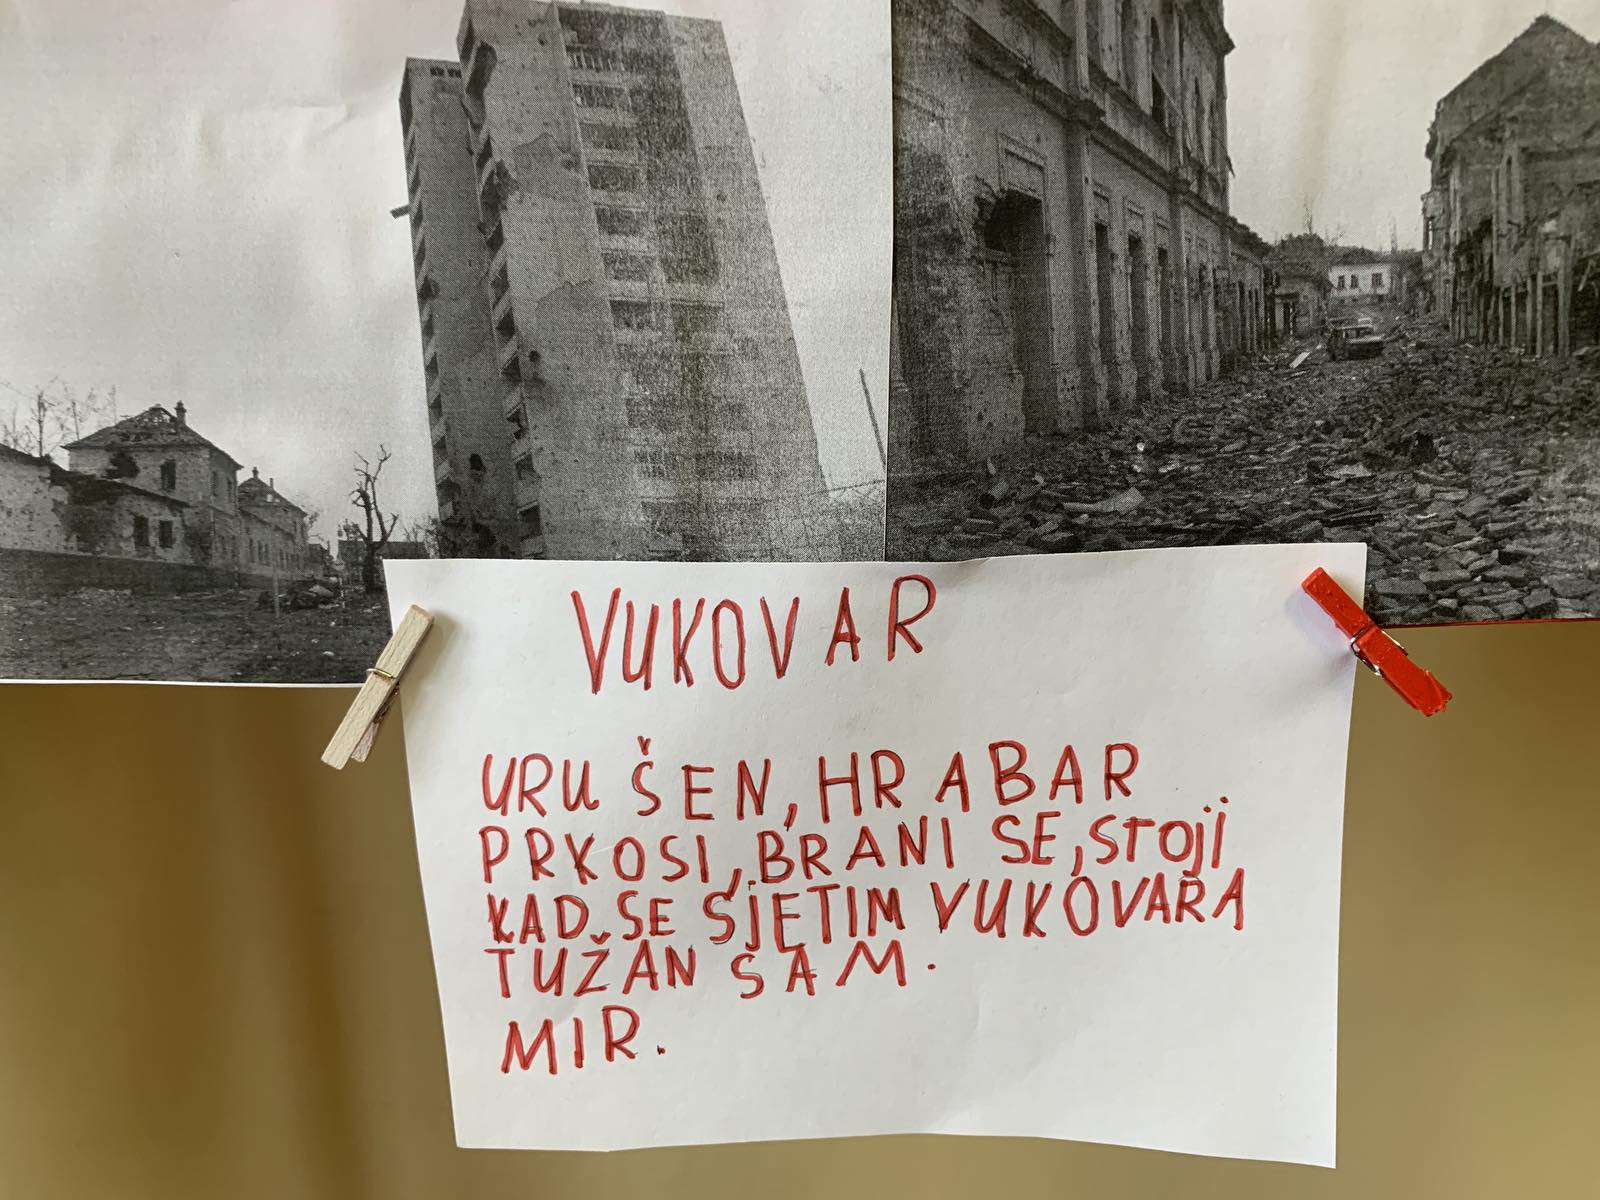 VUKOVAR
URUŠEN, HRABAR
PRKOSI, BRANI SE, STOJI
KAD SE SJETIM VUKOVARA
TUŽAN SAM.
MIR.